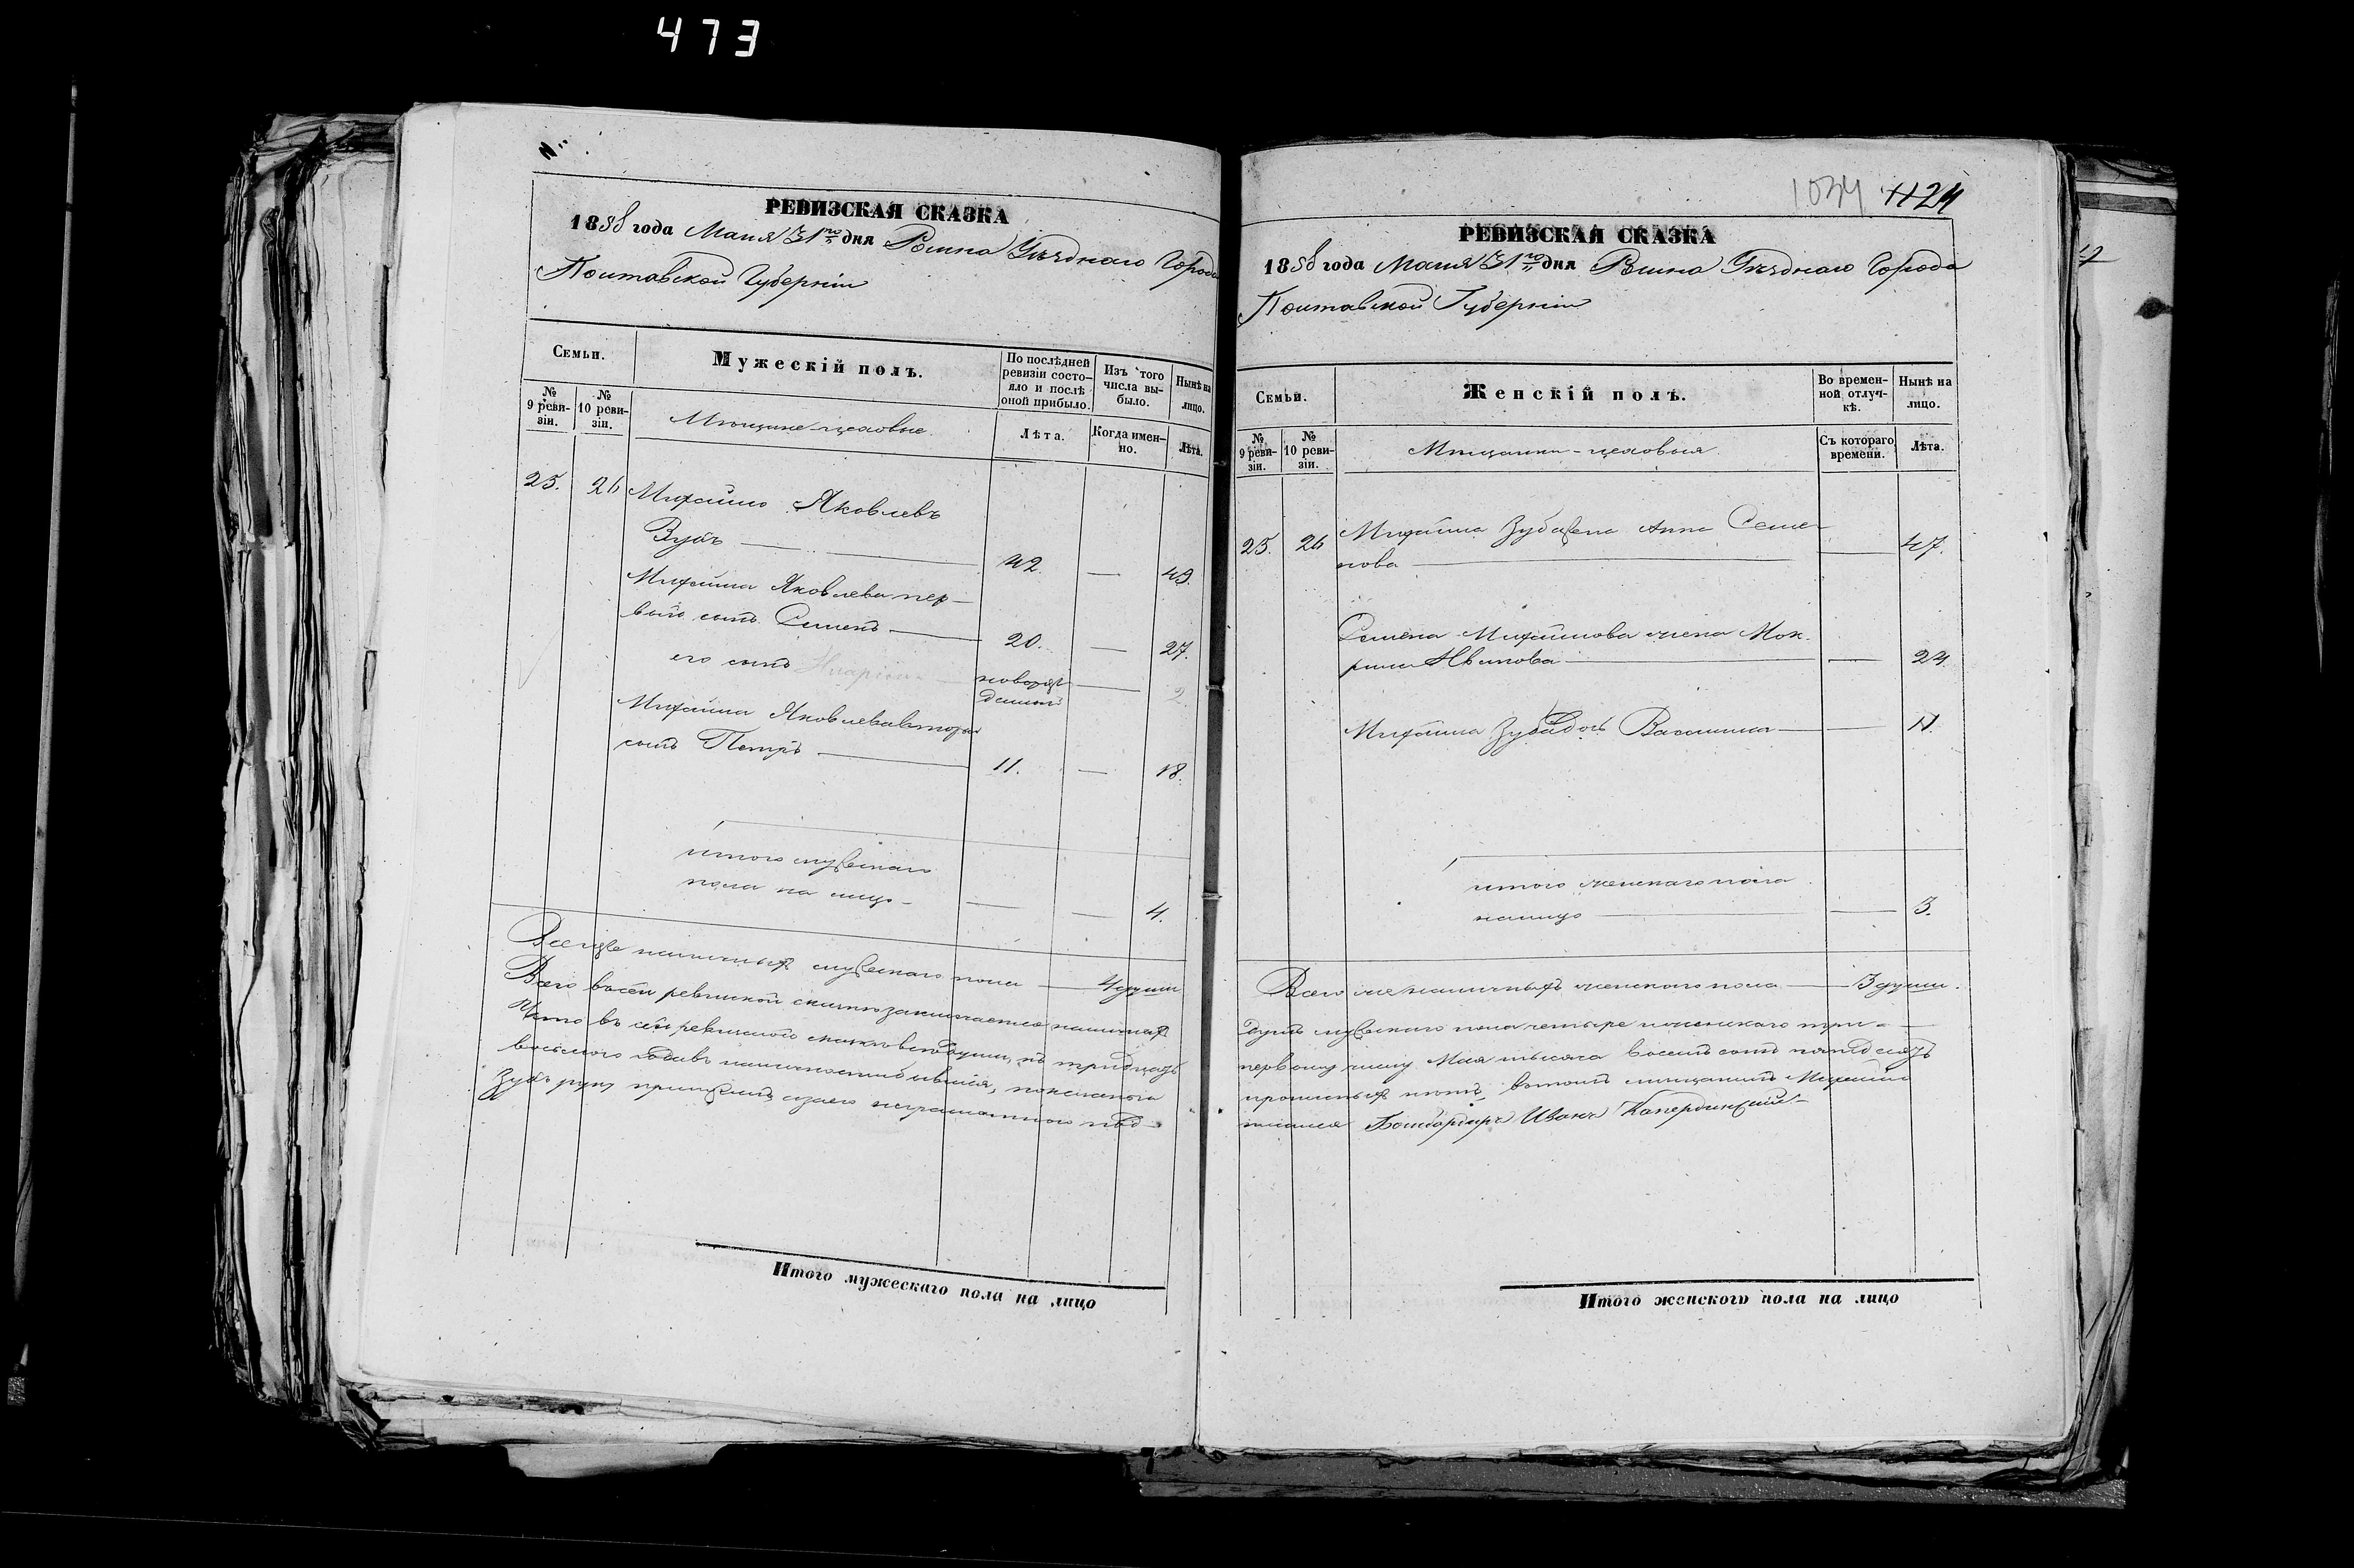 473
№
РЕВИЗСКАЯ СКАЗКА
1858 года Маия 31го дня Ромна Уѣзднаго Города
Полтавской Губерніи
Семьи.
Мужескій полъ.
По послѣдней ревизіи состояло и послѣ оной прибыло.
Изъ того числа выбыло.
Нынѣ на лицо.
№ 9 ревизіи.
№ 10 ревизіи.
Мѣщане-цеховые.
Лѣта.
Когда именно.
Лѣта.
25. 26 Михайло Яковлевъ
Зубъ 42. 49.
Михайла Яковлева пер-
вый сынъ Семенъ 20. 27.
его сынъ Иларіонъ новорож-
денный 2
Михайла Яковлева вторый
сынъ Петръ 11. 18.
итого мужескаго
пола на лицо 4.
Всего же наличныхъ мужескаго пола 4 души
Всего въ сей ревизской сказкѣ заключается наличныхъ
Что въ сей ревизской сказкѣ всѣ души, къ тридцать
восьмого года въ наличности бывшія, показаны и
Зубъ руку приложилъ, а за его неграмотного под-
1034 1124
РЕВИЗСКАЯ СКАЗКА
1858 года Маия 31го дня Ромна Уѣзднаго Города
Полтавской Губерніи
Семьи.
Женскій полъ.
Во временной отлучкѣ.
Нынѣ на лицо.
№ 9 ревизіи.
№ 10 ревизіи.
Мѣщанки-цеховыя
Съ котораго времени.
Лѣта.
25. 26 Михайла Зуба жена Анна Семе-
нова 47.
Семена Михайлова жена Мок-
рина Иванова 24.
Михайла Зуба дочь Василина 11.
итого женскаго пола
на лицо 3.
Всего же наличныхъ женскаго пола 3 души.
душъ мужескаго пола четыре и женскаго три
первому числу Мая тысяча восемь сотъ пятьдесятъ
прописныхъ нѣтъ, въ томъ мѣщанинъ Михайло
писался Бомбардиръ Иванъ
Итого мужескаго пола на лицо
Итого женского пола на лицо